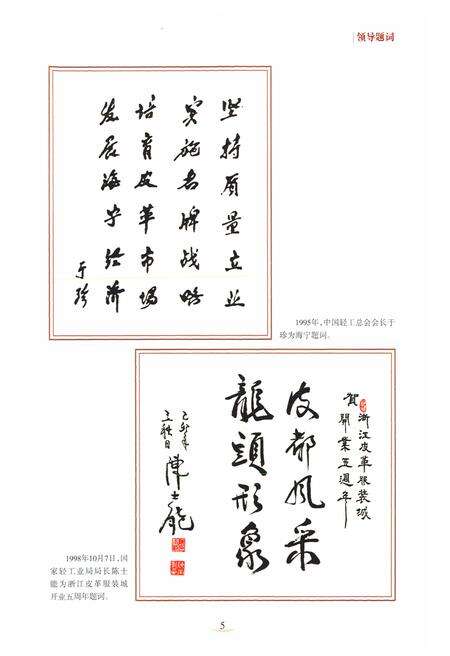 领导题词
坚持质量立业
实施名牌战略
培育皮革市场
发展海宁经济
于珍
1995年,中国轻工总会会长于
珍为海宁题词。
浙江皮革服装城
贺開業五週年
皮都风采
龍頭形象
陳士能
1998年10月7日,国
家轻工业局局长陈士
能为浙江皮革服装城
开业五周年题词。
5